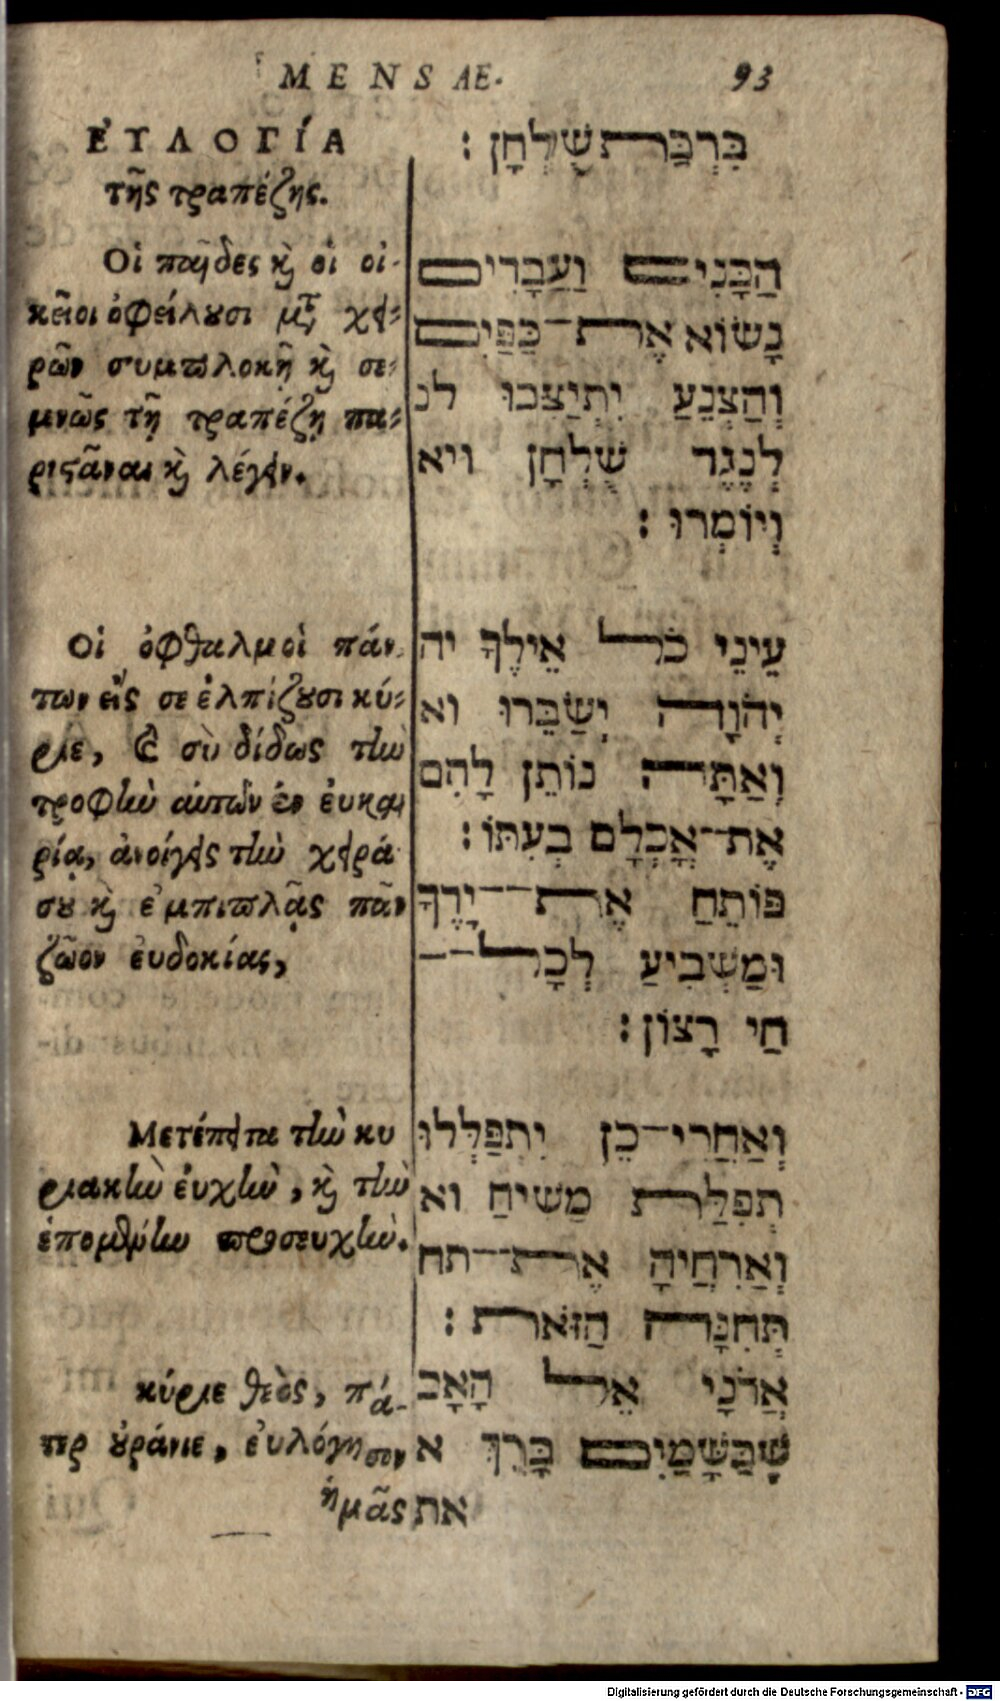 MENSAE.
93
ΕΥ̓ΛΟΓΊΑ
τῆς τραπέζης.
Οἱ παῖδες κὶ οἱ οἰ-
κεῖοι ὀφείλουσι μτ̃ χει-
ρῶν συμπλοκῇ κὶ σε-
μνῶς τῇ τραπέζῃ πα-
ριστᾶναι κὶ λέγειν.
Οἱ ὀφθαλμοὶ πάν-
των εἰς σε ἐλπίζουσι κύ-
ριε, Καὶ σὺ δίδως τὴν
τροφὴν αὐτῶν ἐν εὐκαι
ρίᾳ, ἀνοίγεις τὴν χεῖρά
σου κὶ ἐμπιπλᾷς πᾶν
ζῶον εὐδοκίας,
Μετέπειτα τὴν κυ
ριακὴν εὐχὴν, κὶ τὴν
ἑπομένην προσευχὴν.
κύριε θεὸς, πά-
τερ οὐράνιε, εὐλόγησον
ἡμᾶς
בִּרְכַּת שֻׁלְחָן :
הַבָּנִים וַעֲבָרִים
נָשׂוֹא אֶת־כַּפַּיִם
וְהַצְנֵעַ יִתְיַצִּבוּ לנ
לְנֶגֶד שֻׁלְחָן ויא
וְיוֹמְרוּ :
עֵינֵי כֹל אֵילֶךָ יה
יְהֹוָה יְשַׂבֵּרוּ וא
וְאַתָּה נוֹתֵן לָהֶם
אֶת־אָכְלָם בְעִתּוֹ :
פּוֹתֵחַ אֶת־־יָדֶךָ
וּמַשְׂבִיעַ לְכָל־־
חַי רָצוֹן :
וְאַחֲרִי־כֵן יִתְפַּלְּלוּ
תְפִלַּת מַשִׁיחַ וא
וְאַרְחֲיהָ אֶת־־תח
תְּחִנָּה הַזּאֹת :
אֲדֹנָי אֵל הָאָב
שֶׁבַּשָּׁמַיִם בָּרֵךְ א
את